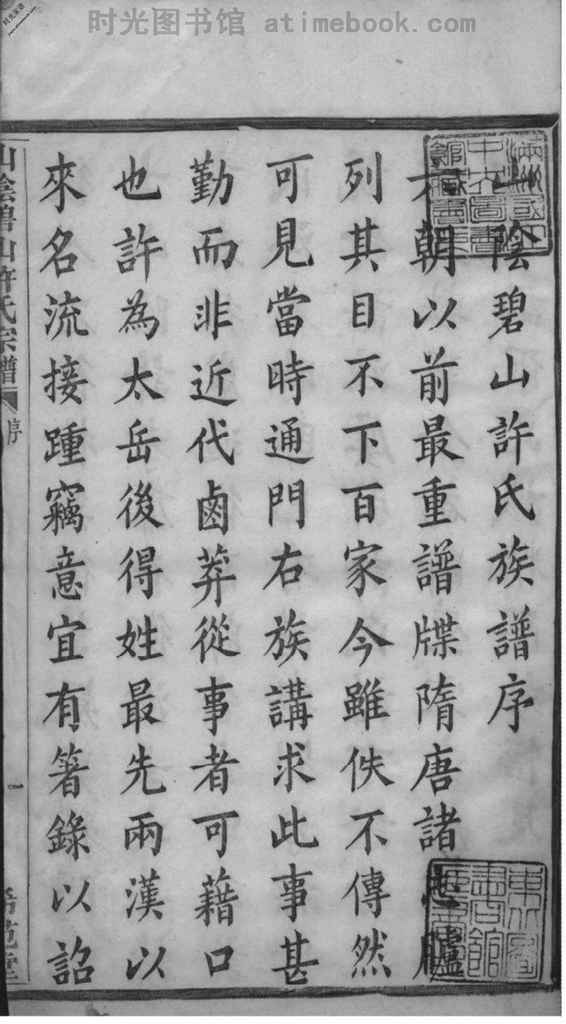 时光图书馆 atimebook.com
山陰碧山許氏族譜序
六朝以前最重譜牒隋唐諸志臚
列其目不下百家今雖佚不傳然
可見當時通門右族講求此事甚
勤而非近代鹵莽從事者可藉口
也許為太岳後得姓最先兩漢以
來名流接踵竊意宜有著錄以詒
山陰碧山許氏宗譜
序
一